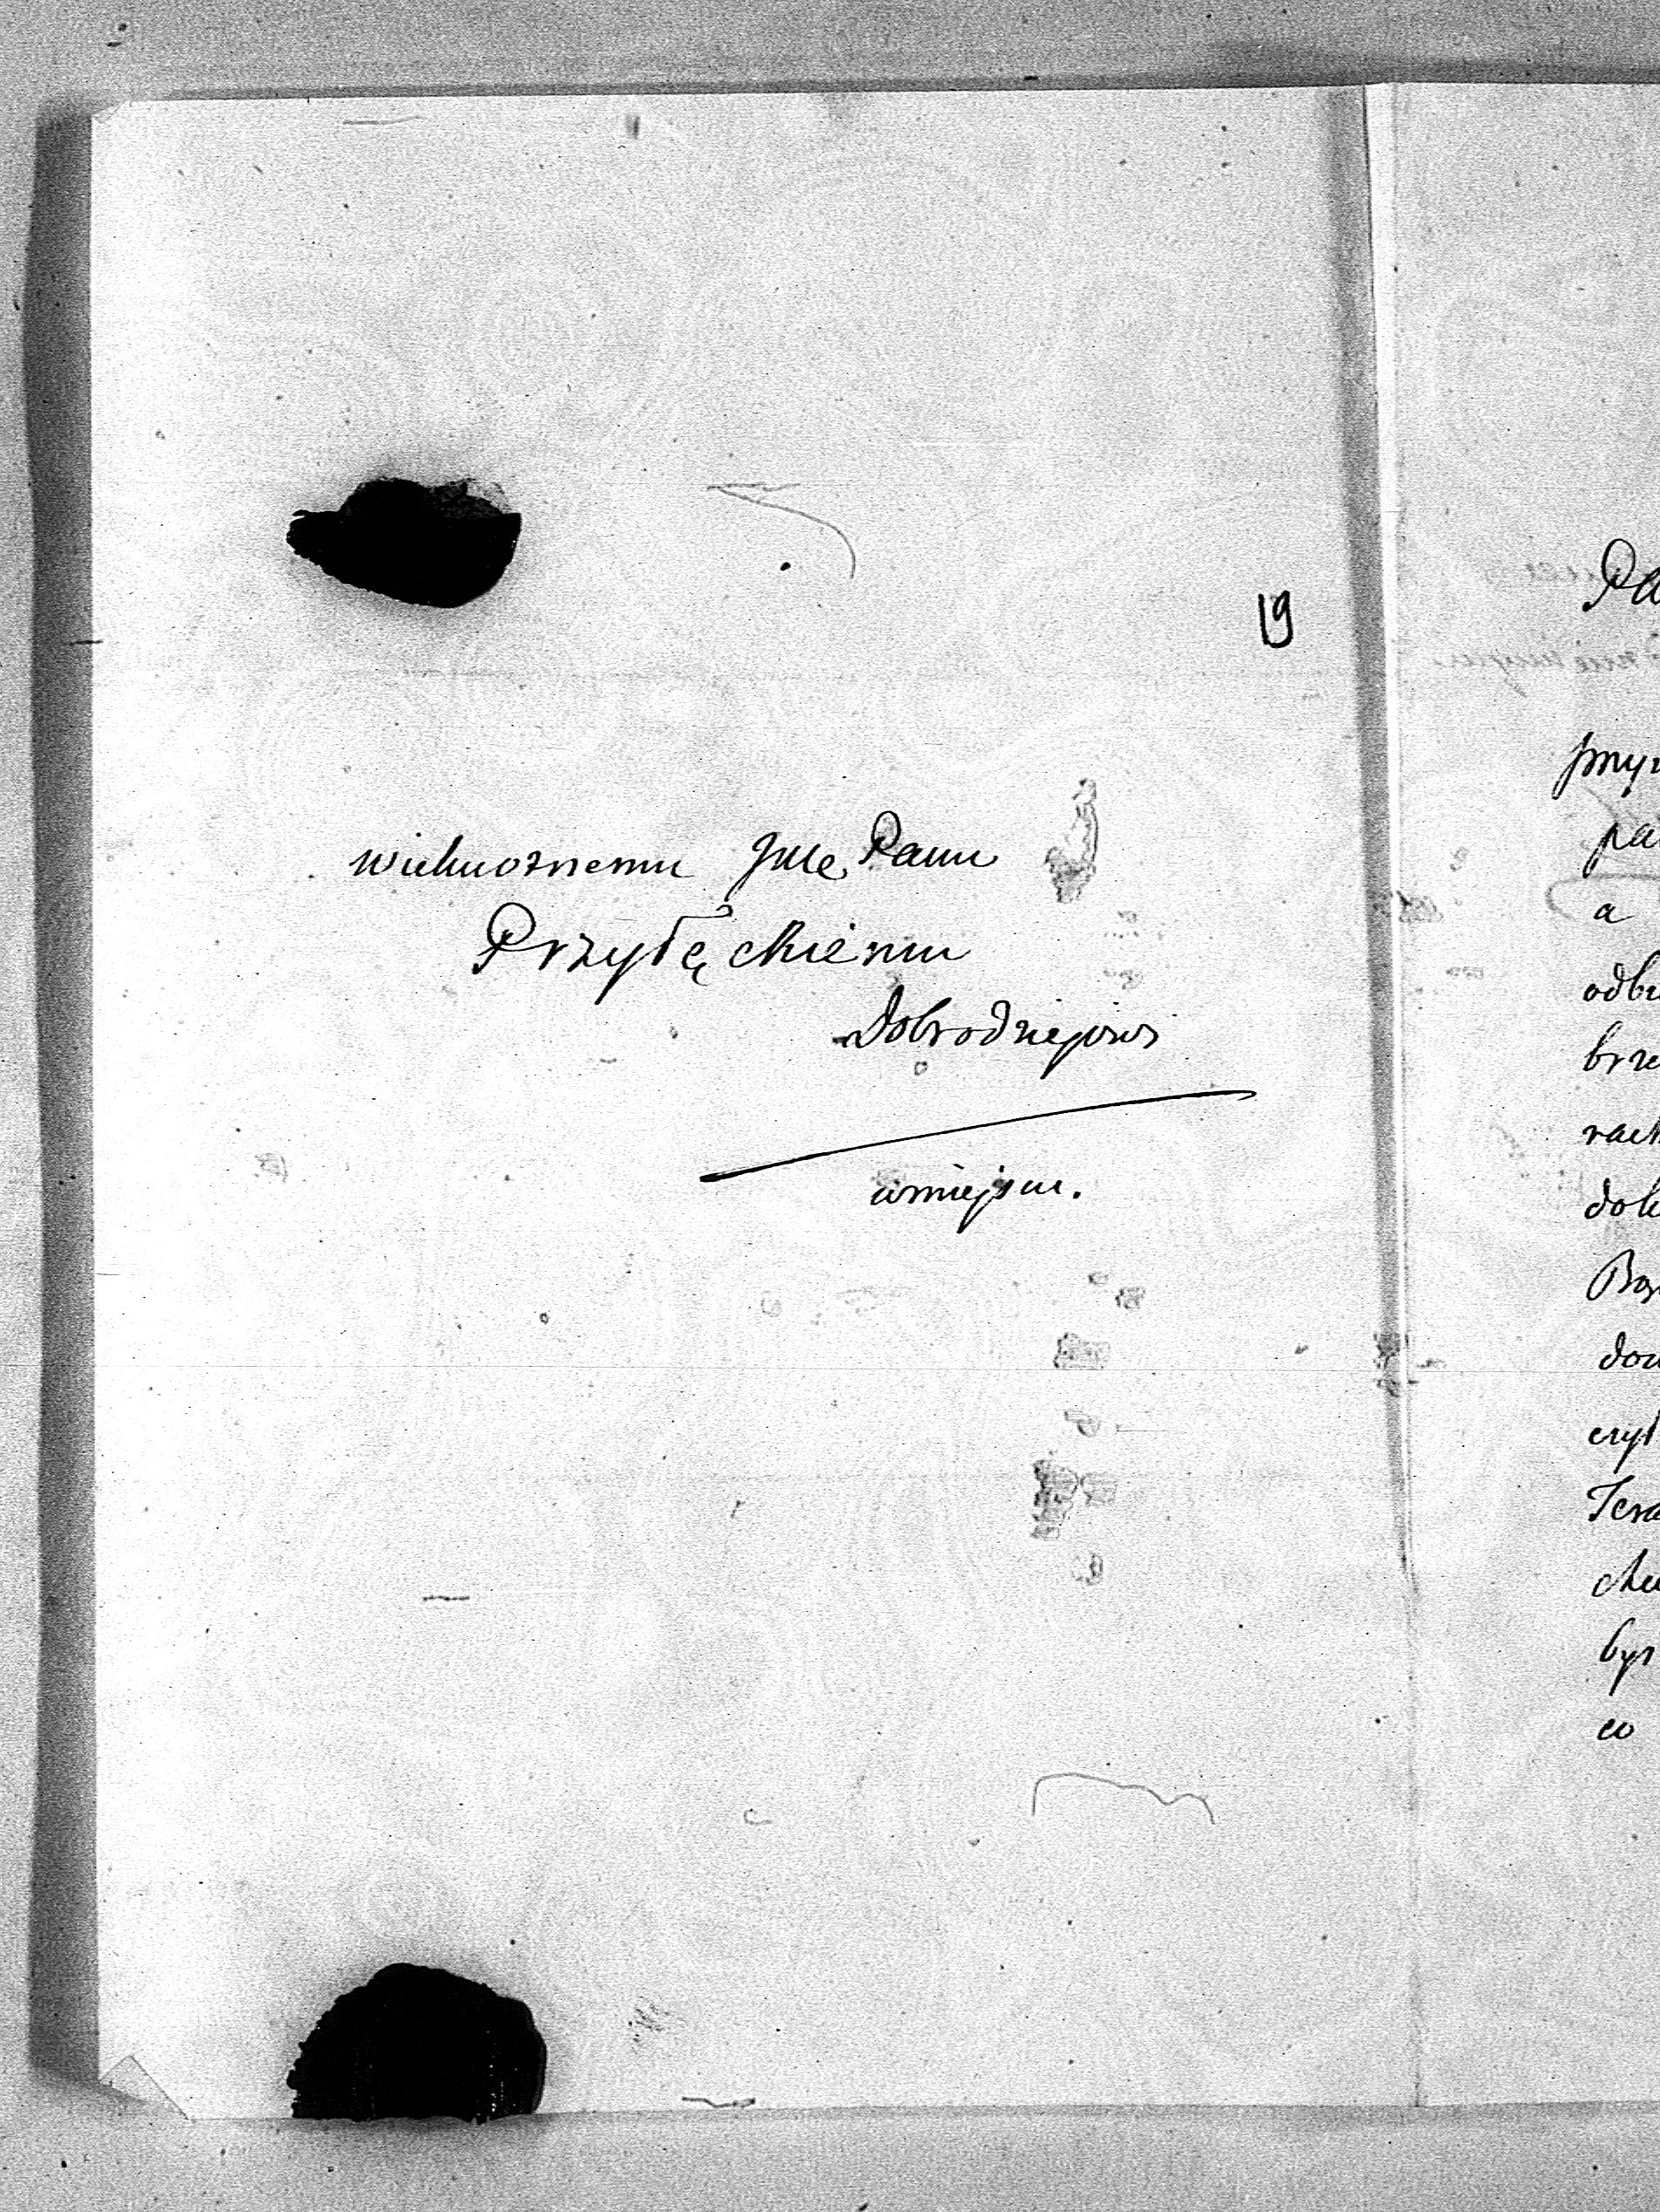 19
wielmożnemu Jmc Panu
Przyłęckiemu
Dobrodziejowi
wmiejscu.
Pa
przy
pa
a
odbi
brze
rach
dok
Boż
dow
czył
Tera
chci
był
co